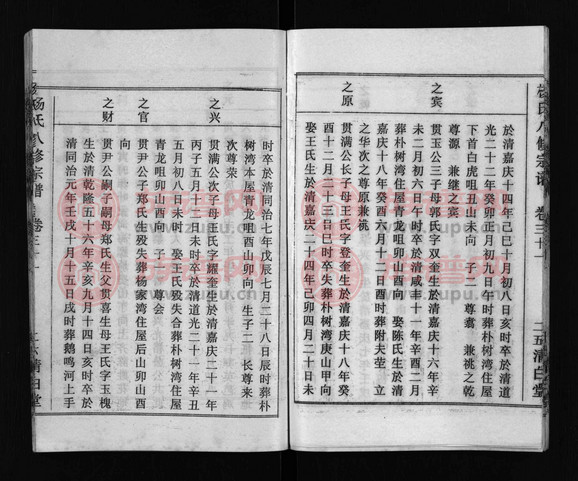 杨氏八修宗谱
卷三十一
二五清白堂
於清嘉庆十四年己巳十月初八日亥时卒於清道
光二十二年癸卯正月初九日午时葬朴树湾住屋
下首白虎咀丑山未向 子二 尊翥 兼祧之乾
尊源 兼继之宾
之宾
贯玉公三子母郭氏字双奎生於清嘉庆十六年辛
未二月初六日午时卒於清咸丰十一年辛酉二月
葬朴树湾青龙咀卯山酉向 娶陈氏生於清
嘉庆十八年癸酉六月十二日酉时葬附夫茔 立
之华次之尊原兼祧
之原
贯满公长子母王氏字登奎生於清嘉庆十八年癸
酉十二月二十三日巳时卒失葬朴树湾庚山甲向
娶王氏生於清嘉庆二十四年己卯四月二十日未
时卒於清同治七年戊辰七月二十八日辰时葬朴
树湾本屋青龙咀酉山卯向 生子二 长尊来
次尊荣
之兴
贯满公次子母王氏字耀奎生於清嘉庆二十一年
丙子五月十三日未时卒於清道光二十一年辛丑
五月初八日未时 娶王氏殁失合葬朴树湾住屋
青龙咀卯山酉向 子一 尊会
之官
贯尹公子郑氏生殁失葬杨家湾住屋后山卯山酉
向
之财
贯尹公嗣子嗣母郑氏生父贯喜生母王氏字玉槐
生於清乾隆五十六年辛亥九月十四日亥时卒於
清同治元年壬戌十月十五日戌时葬鹅鸣河上手
杨氏八修宗谱
卷三十一
二六清白堂